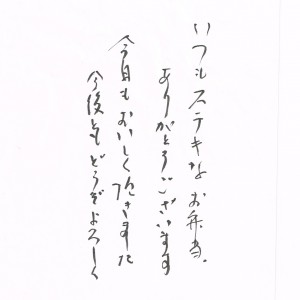 いつもステキなお弁当、
ありがとうございます
今日もおいしく頂きました
今後ともどうぞよろしく